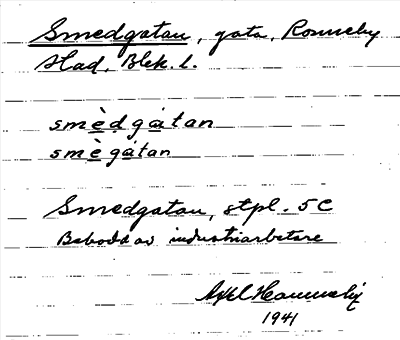 Smedgatan, gata, Ronneby
stad, Blek. l.
smèdgatan
smègatan
Smedgatan, stpl. 5C
Bebodd av industriarbetare
Axel
1941